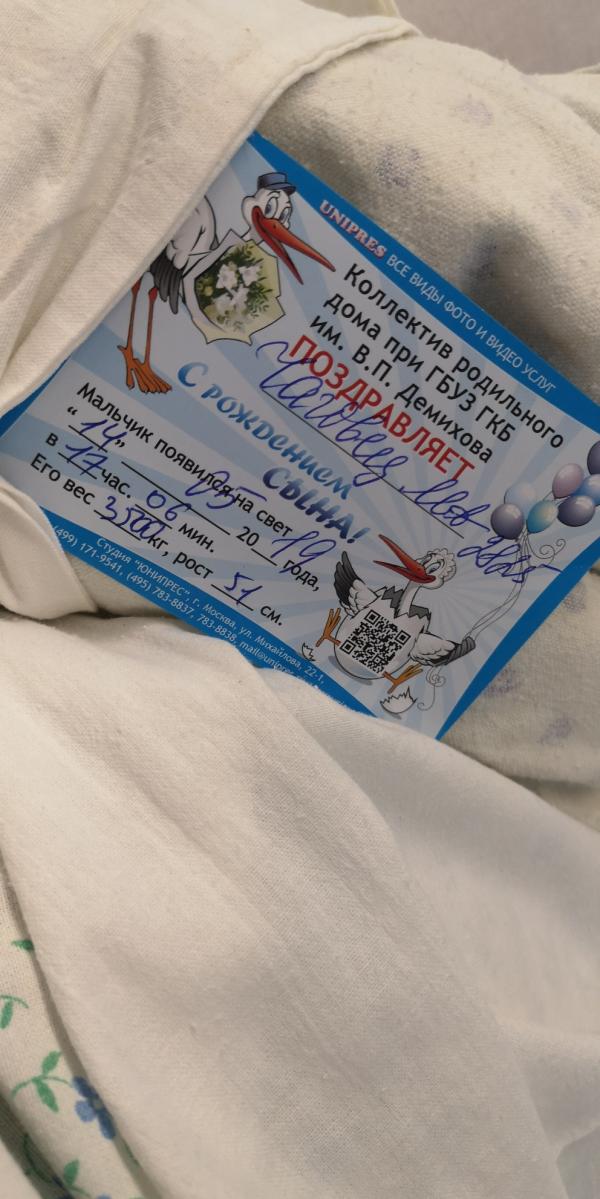 UNIPRES ВСЕ ВИДЫ ФОТО И ВИДЕО УСЛУГ
Коллектив родильного
дома при ГБУЗ ГКБ
им. В.П. Демихова
ПОЗДРАВЛЯЕТ
С РОЖДЕНИЕМ
СЫНА!
Мальчик появился на свет
"14" 05 2019 года,
в 17 час. 06 мин.
Его вес 3500 кг, рост 51 см.
Студия "ЮНИПРЕС", г. Москва, ул. Михайлова, 22-1,
(499) 171-9541, (495) 783-8837, 783-8838,